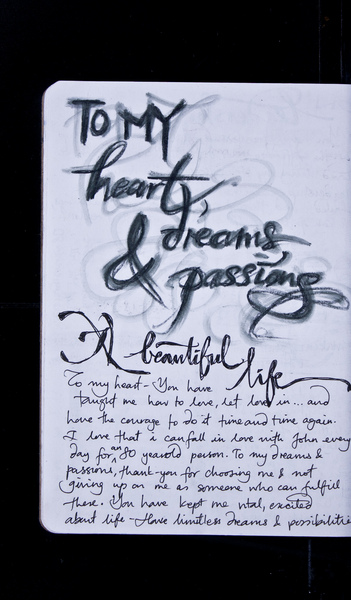 TO MY
heart,
dreams,
& passions
A beautiful
life
To my heart - You have
taught me how to love, let love in... and
have the courage to do it time and time again.
I love that i can fall in love with John every
day for an 80 year old person. To my dreams &
passions, thank-you for choosing me & not
giving up on me as someone who can fulfill
these. You have kept me vital, excited
about life - Have limitless dreams & possibilitie